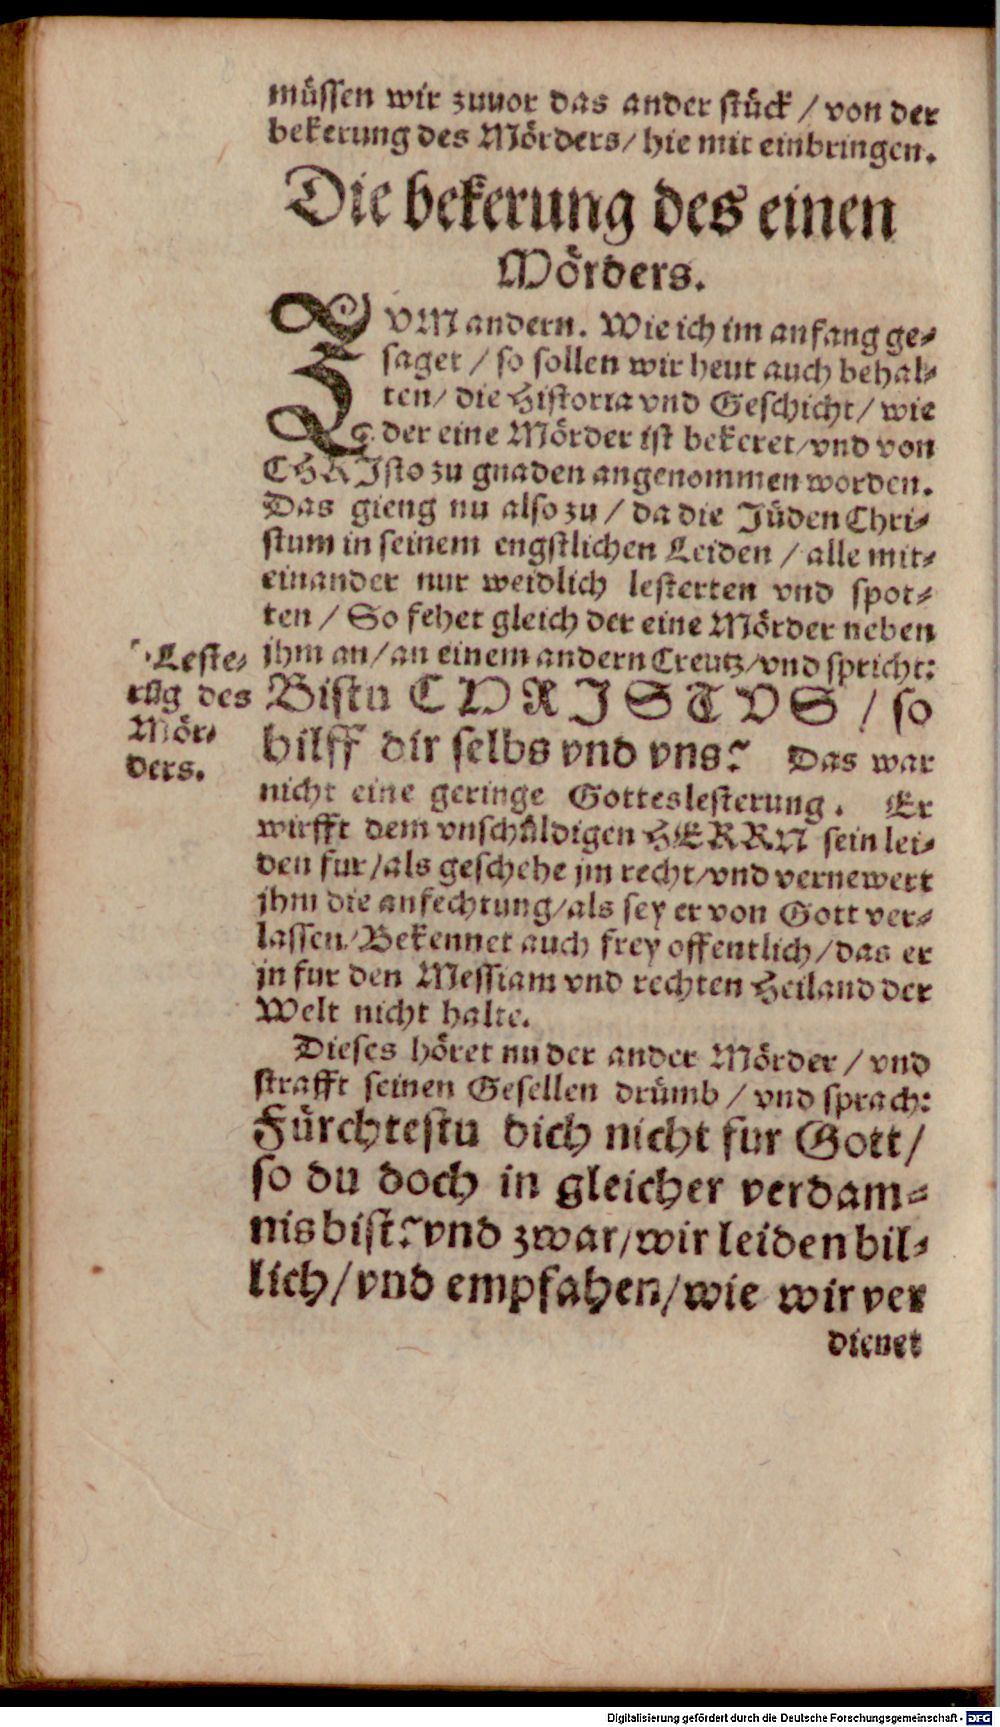 müssen wir zuuor das ander stück / von der
bekerung des Mörders / hie mit einbringen.
Die bekerung des einen
Mörders.
ZVM andern. Wie ich im anfang ge-
saget / so sollen wir heut auch behal-
ten / die Historia vnd Geschicht / wie
der eine Mörder ist bekeret / vnd von
CHRIsto zu gnaden angenommen worden.
Das gieng nu also zu / da die Jüden Chri-
stum in seinem engstlichen Leiden / alle mit-
einander nur weidlich lesterten vnd spot-
ten / So fehet gleich der eine Mörder neben
jhm an / an einem andern Creutz / vnd spricht:
Bistu CHRISTVS / so
hilff dir selbs vnd vns? Das war
nicht eine geringe Gotteslesterung. Er
wirfft dem vnschüldigen HERRN sein lei-
den fur / als geschehe jm recht / vnd vernewert
jhm die anfechtung / als sey er von Gott ver-
lassen / Bekennet auch frey offentlich / das er
jn fur den Messiam vnd rechten Heiland der
Welt nicht halte.
Dieses höret nu der ander Mörder / vnd
strafft seinen Gesellen drümb / vnd sprach:
Fürchtestu dich nicht fur Gott /
so du doch in gleicher verdam-
nis bist? vnd zwar / wir leiden bil-
lich / vnd empfahen / wie wir ver
dienet
Leste-
rūg des
Mör-
ders.
Digitalisierung gefördert durch die Deutsche Forschungsgemeinschaft - DFG